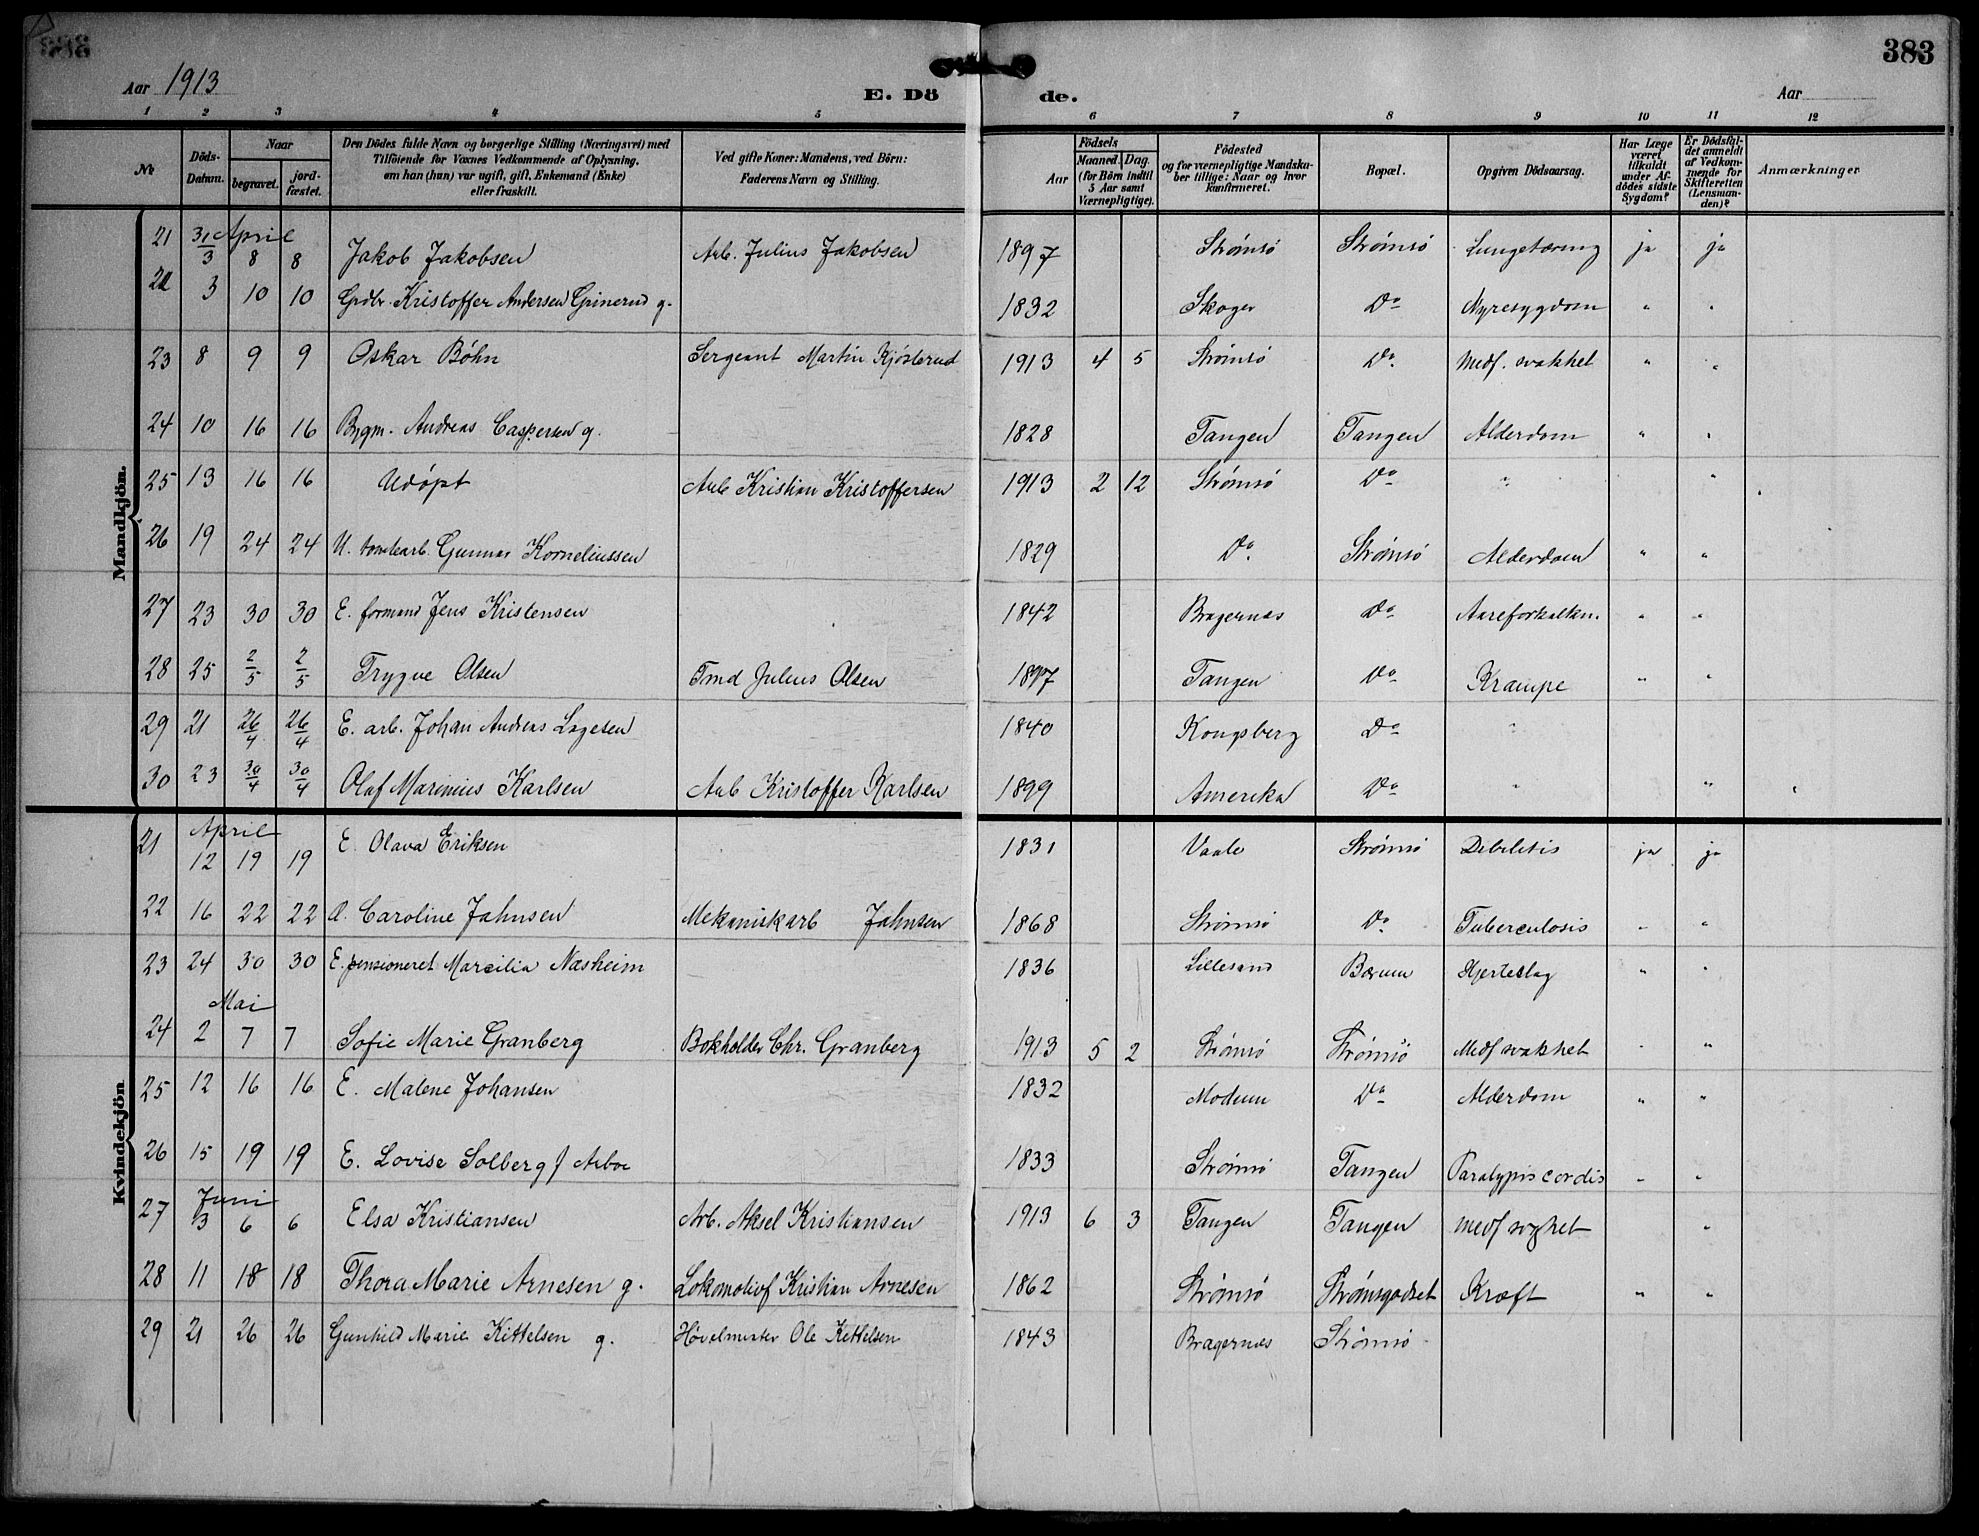 383
Aar 1913
E. Dö de.
Aar
1 2 3 4 5 6 7 8 9 10 11 12
No
Döds-Datum.
Naar
begravet.
jord-fæstet.
Den Dödes fulde Navn og borgerlige Stilling (Næringsvei) med Tilföiende for Voxnes Vedkommende af Oplysning, om han (hun) var ugift, gift, Enkemand (Enke) eller fraskilt.
Ved gifte Koner: Mandens, ved Börn: Faderens Navn og Stilling.
Födsels
Aar
Maaned. Dag.
(for Börn indtil 5 Aar samt Værnepligtige).
Födested og for værnepligtige Mandska-ber tillige: Naar og hvor Konfirmeret.
Bopæl.
Opgiven Dödsaarsag.
Har Læge været tilkaldt under Af-dödes sidste Sygdom?
Er Dödsfal-det anmeldt af Vedkom-mende for Skifteretten (Lensman-den)?
Anmærkninger
Mandkjön.
April
21 31/3 8 8 Jakob Jakobsen Arb. Julius Jakobsen 1897 Strømsö Strømsö Lungetæring ja ja
22 3 10 10 Grdbr. Kristoffer Andersen Grinerud g. 1832 Skoger Do Nyresygdom " "
23 8 9 9 Oskar Bøhn Sergeant Martin Kjösterud 1913 4 5 Strømsö Do. Medf. svakhet " "
24 10 16 16 Bygm. Andreas Caspersen g. 1828 Tangen Tangen Alderdom " "
25 13 16 16 Udøpt Arb Kristian Kristoffersen 1913 2 12 Strømsö Do " "
26 19 24 24 U. tomtearb. Gunnar Korneliussen 1829 Do. Strømsö Alderdom " "
27 23 30 30 E. formand Jens Kristensen 1842 Bragernæs Do Aareforkalkn. " "
28 25 2/5 2/5 Trygve Olsen Tmd Julius Olsen 1897 Tangen Do Krampe " "
29 21 26/4 26/4 E. arb. Johan Andreas Lagesen 1840 Kongsberg Do "
30 23 30/4 30/4 Olaf Marinius Karlsen Arb Kristoffer Karlsen 1899 Amerika Do " "
Kvindekjön
April
21 12 19 19 E. Olava Eriksen 1831 Vaale Strømsö Debilitis ja ja
22 16 22 22 Caroline Jahnsen Mekaniskarb Jahnsen 1868 Strømsö Do Tuberculosis " "
23 24 30 30 E. pensioneret Marcilia Næsheim 1836 Lillesand Bærum Hjerteslag " "
Mai
24 2 7 7 Sofie Marie Granberg Bokholder Chr. Granberg 1913 5 2 Strømsö Strømsö Medf svakhet " "
25 12 16 16 E. Malene Johansen 1832 Modum Do Alderdom " "
26 15 19 19 E. Lovise Solberg f Arboe 1833 Strømsö Tangen Paralypis cordis " "
Juni
27 3 6 6 Elsa Kristiansen Arb. Aksel Kristiansen 1913 6 3 Tangen Tangen medf svakhet "
28 11 18 18 Thora Marie Arnesen g. Lokomotivf Kristian Arnesen 1862 Strømsö Strömsgodset Kræft " "
29 21 26 26 Gunhild Marie Kittelsen g. Høvelmester Ole Kittelsen 1843 Bragernæs Strømsö